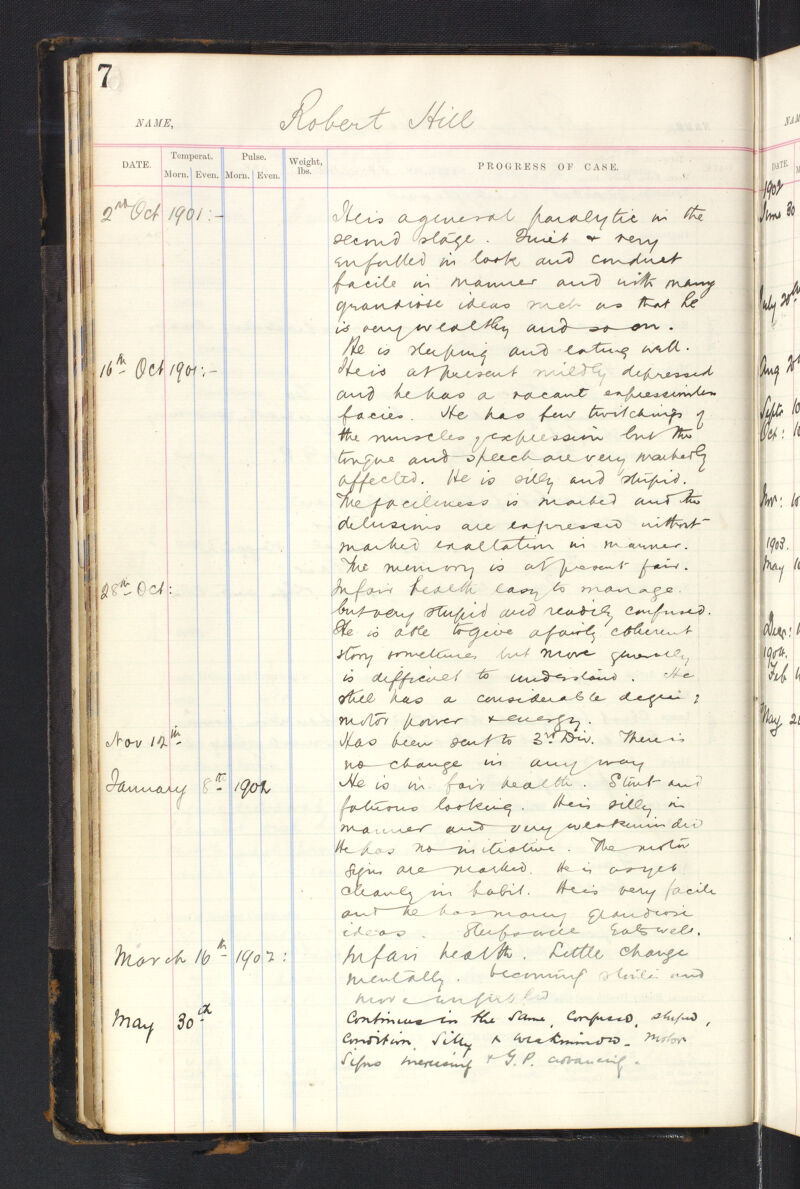 7
NAME, Robert Hill
DATE. Temperat. Morn. Even. Pulse. Morn. Even. Weight, lbs. PROGRESS OF CASE.
2nd Oct 1901:- He is a general paralytic in the
second stage. Quiet & very
enfeebled in look and conduct
facile in manner and with many
grandiose ideas such as that he
is very wealthy and so on.
He is sleeping and eating well.
16th Oct 1901:- He is at present mildly depressed
and he has a vacant expressionless
facies. He has few twitchings of
the muscles of expression but the
tongue and speech are very markedly
affected. He is silly and stupid.
The facileness is marked and the
delusions are expressed without
marked exaltation in manner.
The memory is at present fair.
28th Oct: In fair health easy to manage.
but very stupid and readily confused.
He is able to give a fairly coherent
story sometimes but more generally
is difficult to understand. He
still has a considerable degree of
motor power & energy.
Nov 12th Has been sent to 3rd Div. There is
no change in any way
January 8th 1902 He is in fair health. Stout and
fatuous looking. He is silly in
manner and very weakminded
He has no initiative. The motor
signs are marked. He is as yet
cleanly in habit. He is very facile
and he has many grandiose
ideas. Sleeps well Eats well.
March 16th 1902: In fair health. Little change
mentally. becoming and
more enfeebled
May 30th Continues in the same, confused, stupid,
condition. Silly & weakminded. Motor
signs increasing & G.P. advancing.
NAM
DATE. M
1902
June 30
July 20th
Aug 20
Septr 10
Oct: 10
Nov: 10
1903.
May 10
Decr: 1
1904.
Feb
May 2